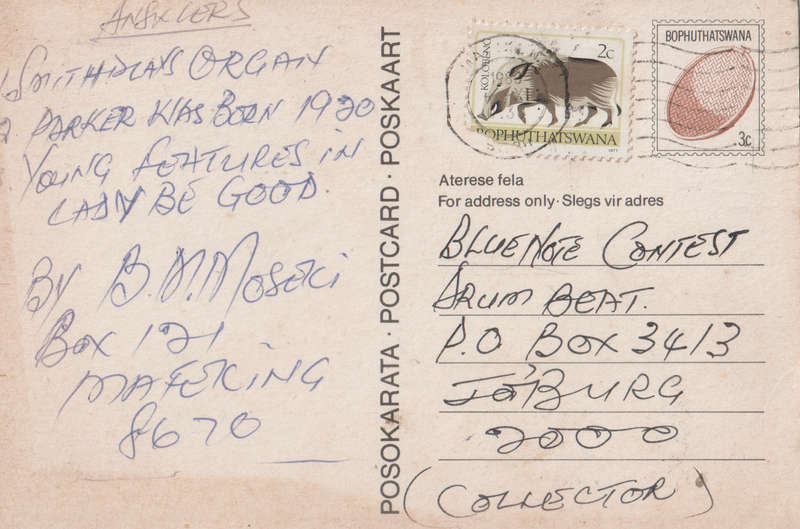 ANSWERS
1 SMITH PLAYS ORGAN
2 PARKER WAS BORN 1920
YOUNG FEATURES IN
LADY BE GOOD.
By B.M. MOSEKI
Box 121
MAFEKING
8670
POSOKARATA · POSTCARD · POSKAART
KOLOBENG
2c
BOPHUTHATSWANA
1977
BOPHUTHATSWANA
3c
Aterese fela
For address only · Slegs vir adres
BLUENOTE CONTEST
DRUM BEAT.
P.O BOX 3413
JO'BURG
2000
(COLLECTOR)